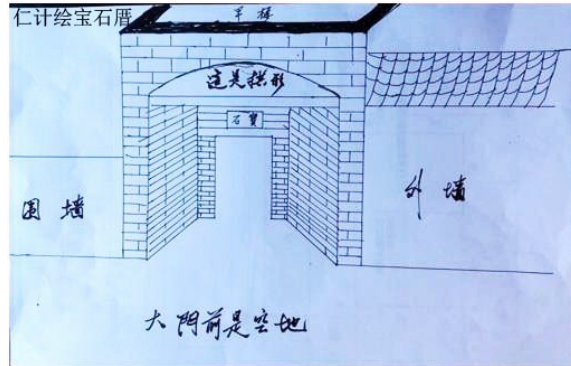 仁计绘宝石厝
这是拱形
石寶
围墙
外墙
大門前是空地